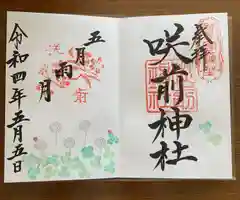 奉拝
咲前神社
五月
雨月
令和四年五月五日